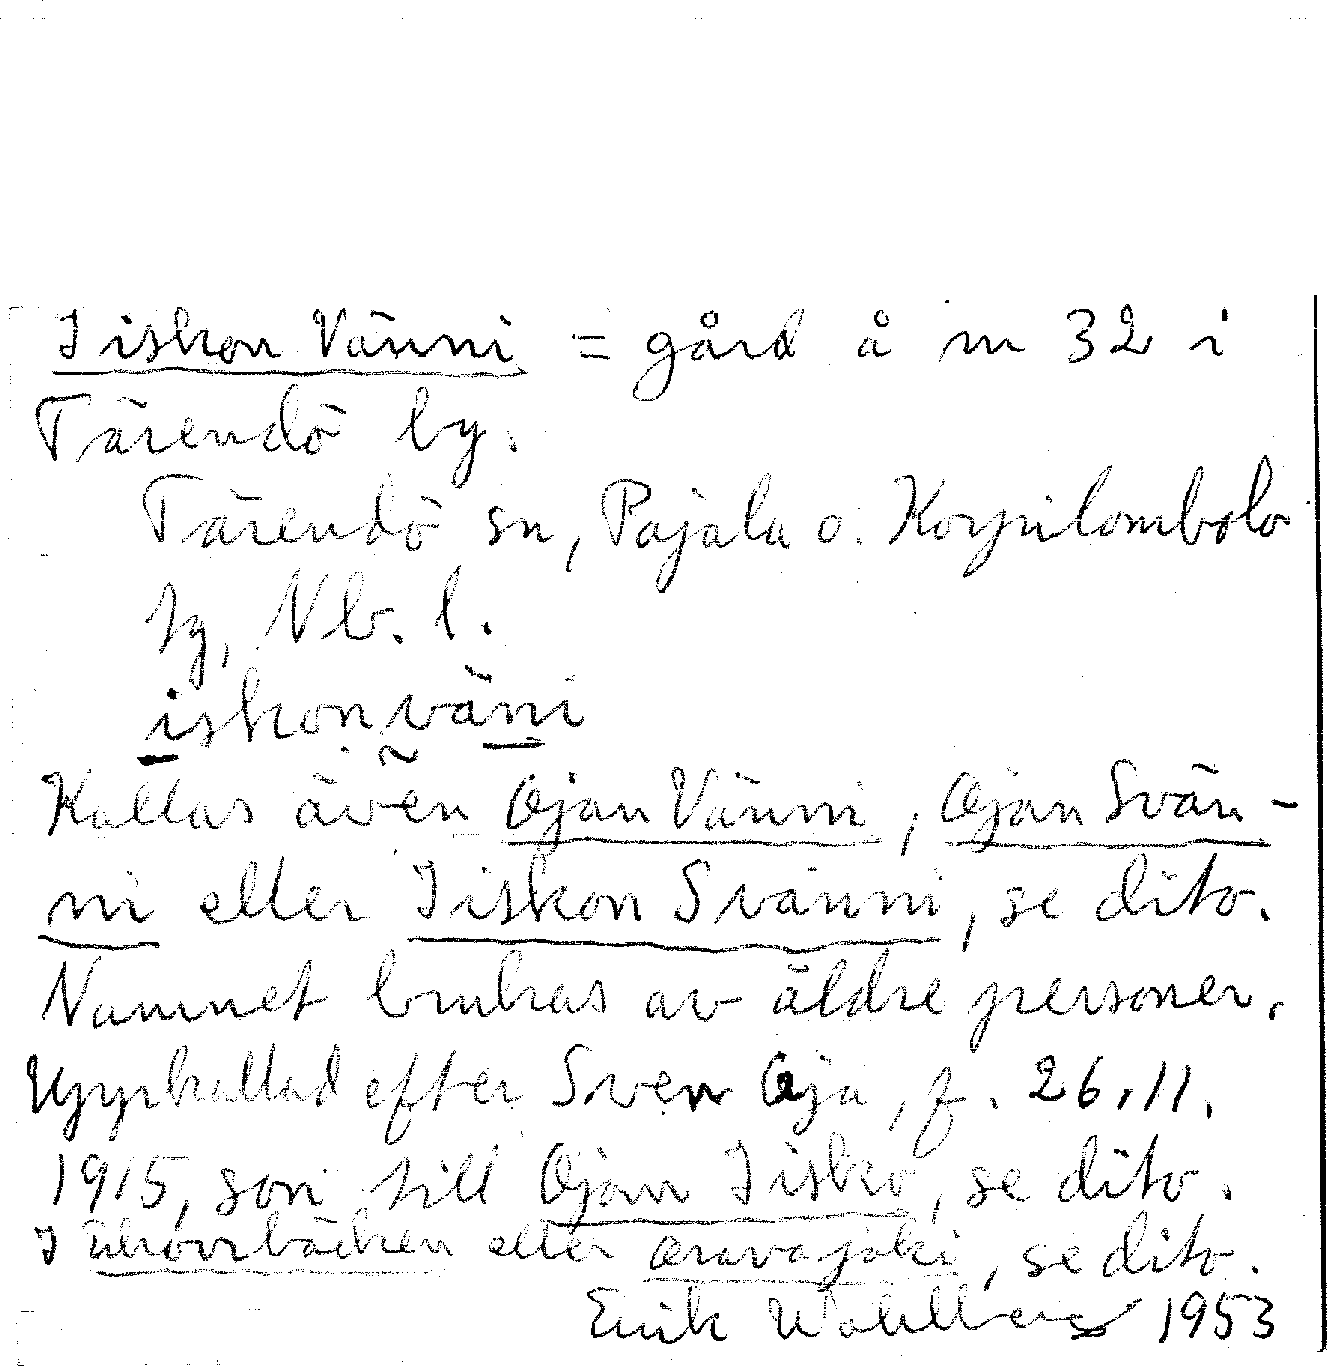 Iiskon Vänni = gård å m 32 i
Tärendö by.
Tärendö sn, Pajala o. Korpilombolo
tg, Nb. l.
iskonväni
Kallas även Ojan Vänni, Ojan Svän-
ni eller Iiskon Svänni, se dito.
Namnet brukas av äldre personer.
Uppkallad efter Sven Oja, f. 26.11.
1915, son till Ojan Iisko, se dito.
I eller se dito.
Erik Wahlberg 1953